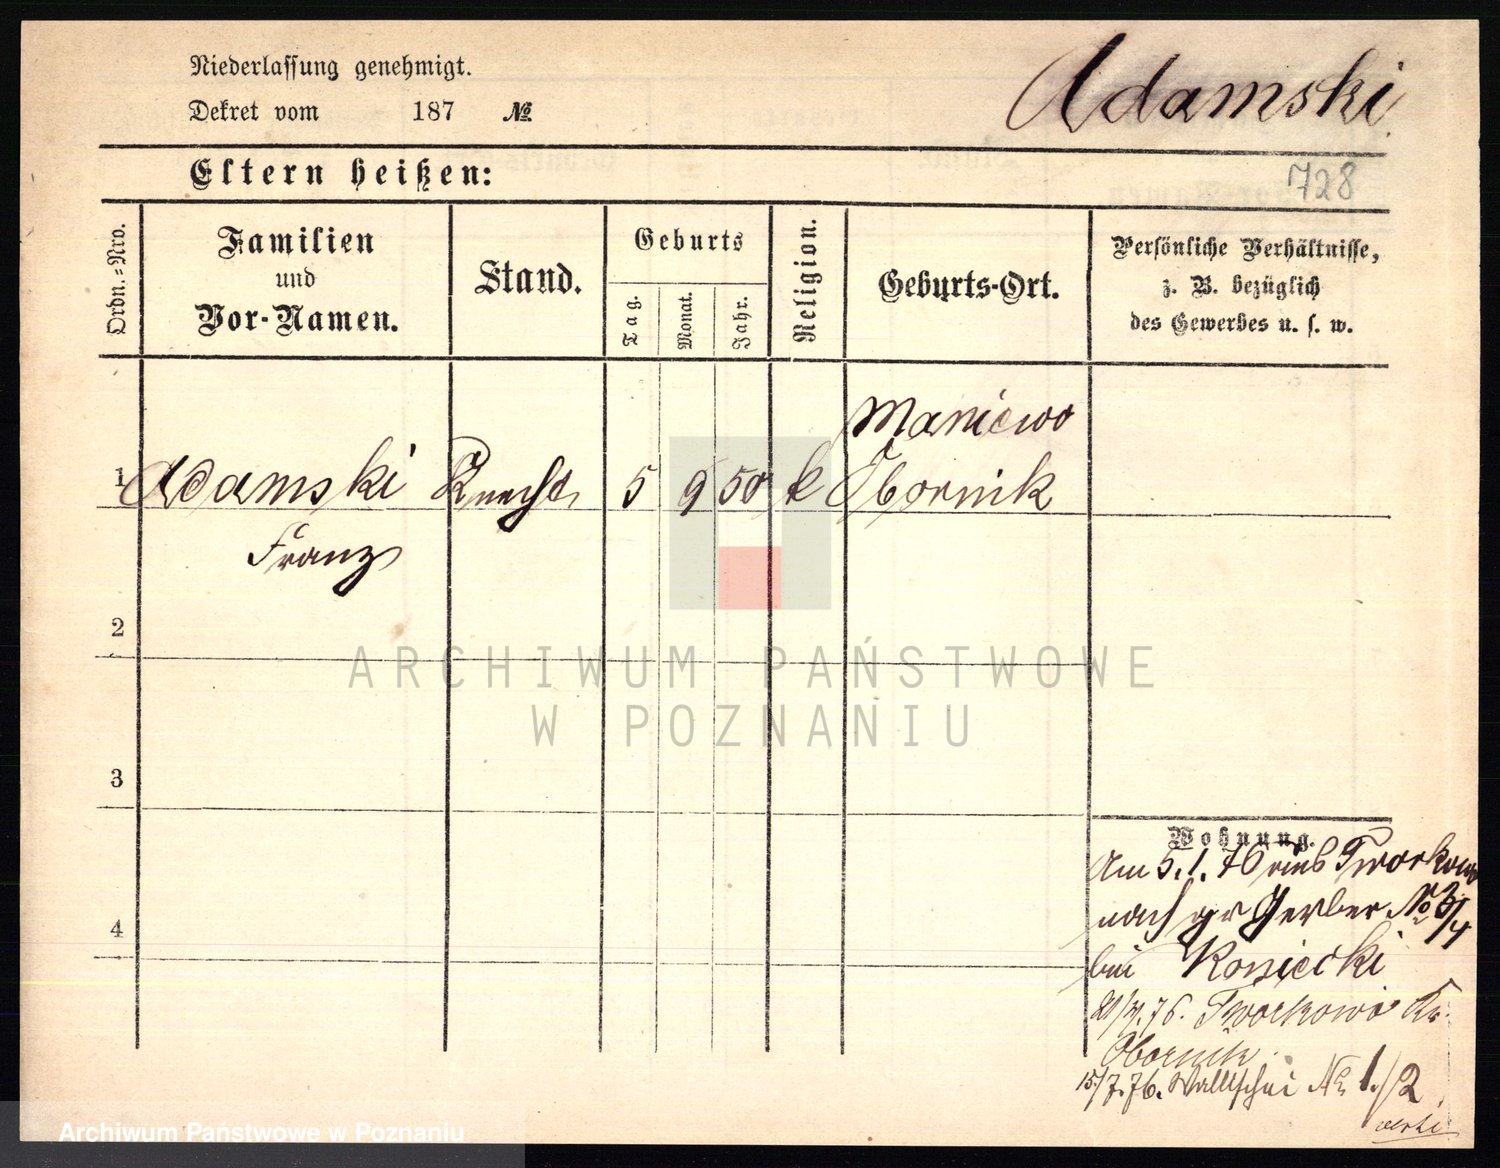 Niederlassung genehmigt.
Dekret vom 187 №
Adamski
Eltern heißen:
728
Ordn.=Nro.
Familien
und
Vor-Namen.
Stand.
Geburts
Tag.
Monat.
Jahr.
Religion.
Geburts-Ort.
Persönliche Verhältnisse,
z. B. bezüglich
des Gewerbes u. s. w.
Maniewo
1 Adamski Knecht 5 9 50 k Obornik
Franz
2
ARCHIWUM PAŃSTWOWE
W POZNANIU
3
Wohnung.
Am 5.1.76 aus Tworkowo
nach gr Gerber No 3/4
bei Konieczki
76. Tworkowo Kr.
Obornik
15/7.76. Wallischei No 1/2
4
Archiwum Państwowe w Poznaniu